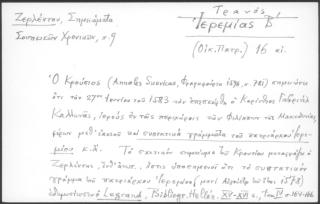 Ζερλέντου, Σημειώματα
Σιντικιων Χρονικων, σ. 9
Τρανός
Ἱερεμίας Β′
(Οἰκ. Πατρ.) 16 αἰ.
Ὁ Κρούσιος (Annales Suevicae, Φραγκφούρτη 1596, σ. 781) σημειώνει
ὅτι τὴν 27ην Ἰουνίου τοῦ 1583 τὸν ἐπεσκέφθη ὁ Καρίνθιος Γαβριὴλ
Καλλωνᾶς, ἱερεὺς ἐκ τῆς περιοχῆς τῶν Φιλίππων τῆς Μακεδονίας,
φέρων μεθ' ἑαυτοῦ καὶ συστατικὰ γράμματα τοῦ πατριάρχου Ἱερε-
μίου κ.ἄ. Τὸ σχετικὸν σημείωμα τοῦ Κρουσίου μεταγράφει ὁ
Ζερλέντης, ἔνθ' ἀνωτ., ὅστις ὑποσημειοῖ ὅτι τὸ συστατικὸν
γράμμα τοῦ πατριάρχου Ἱερεμίου (1578)
ἐδημοσίευσε Legrand, Bibliogr. Hellén. XV-XVI s., τομ. IV σ.